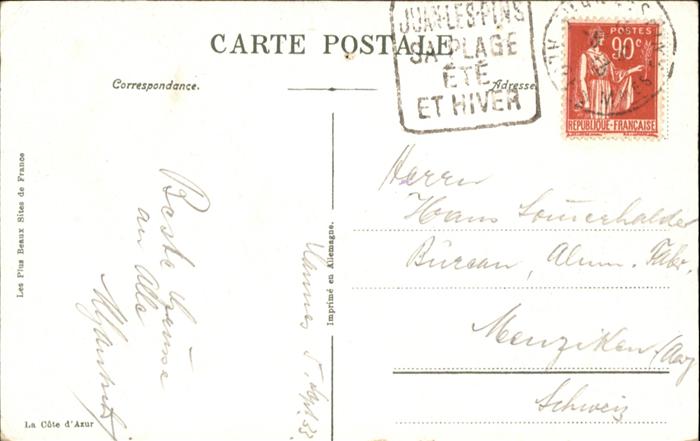 CARTE POSTALE
JUAN-LES-PINS
SA PLAGE
ÉTÉ
ET HIVER
POSTES
90c
REPUBLIQUE-FRANÇAISE
Correspondance.
Adresse
Les Plus Beaux Sites de France
La Côte d'Azur
Imprimé en Allemagne.
Beste Grüsse
an Alle
5. Sept. 33.
Herrn
Hans Sommerhalder
Büreau, Alum. Fabr.
Menziken (Aarg
Schweiz